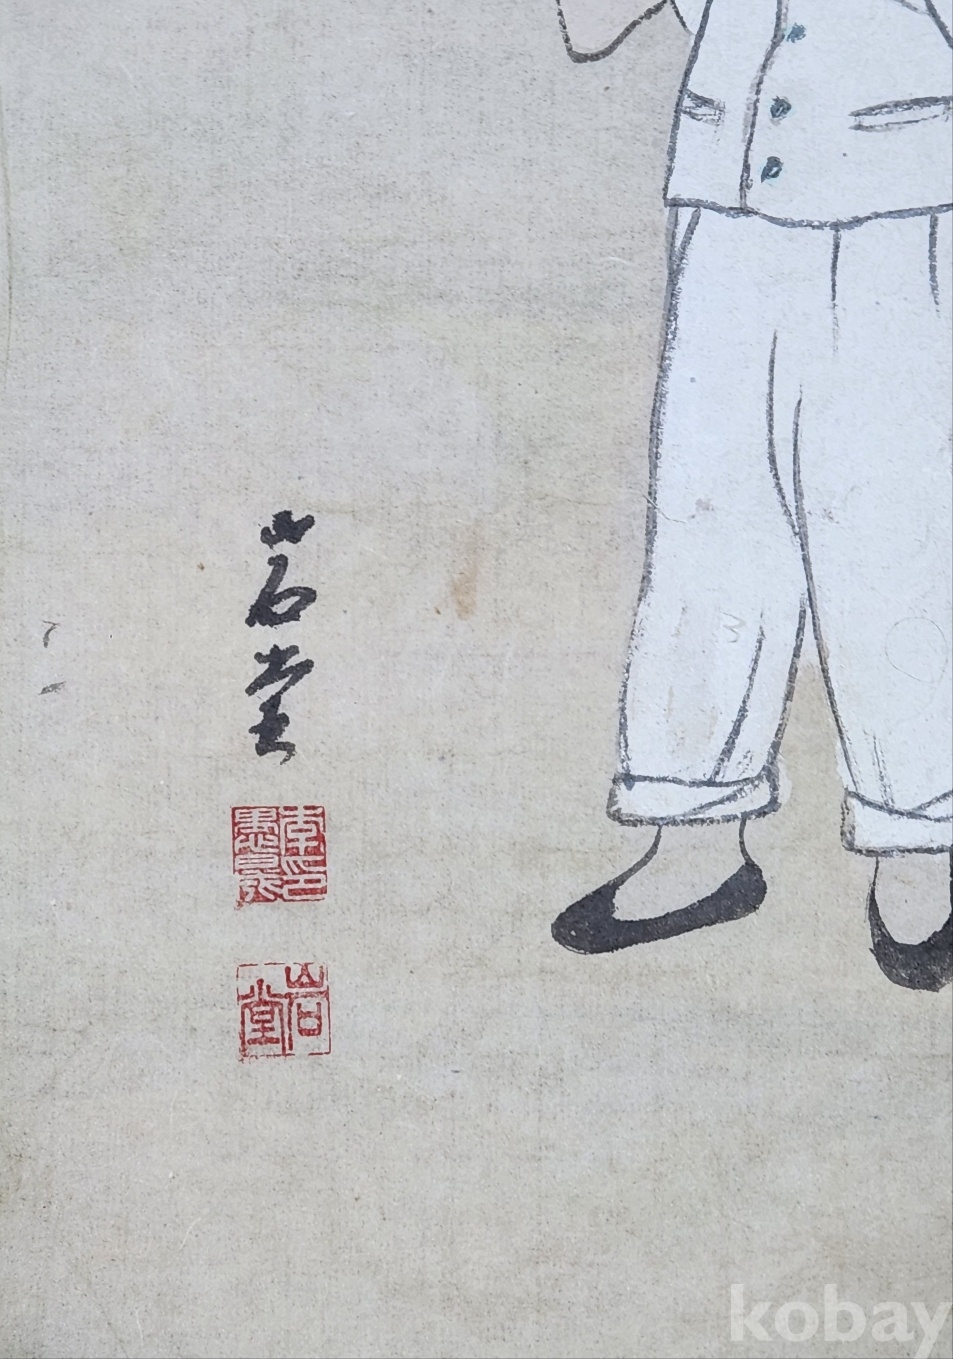 岩堂
岩堂
kobay